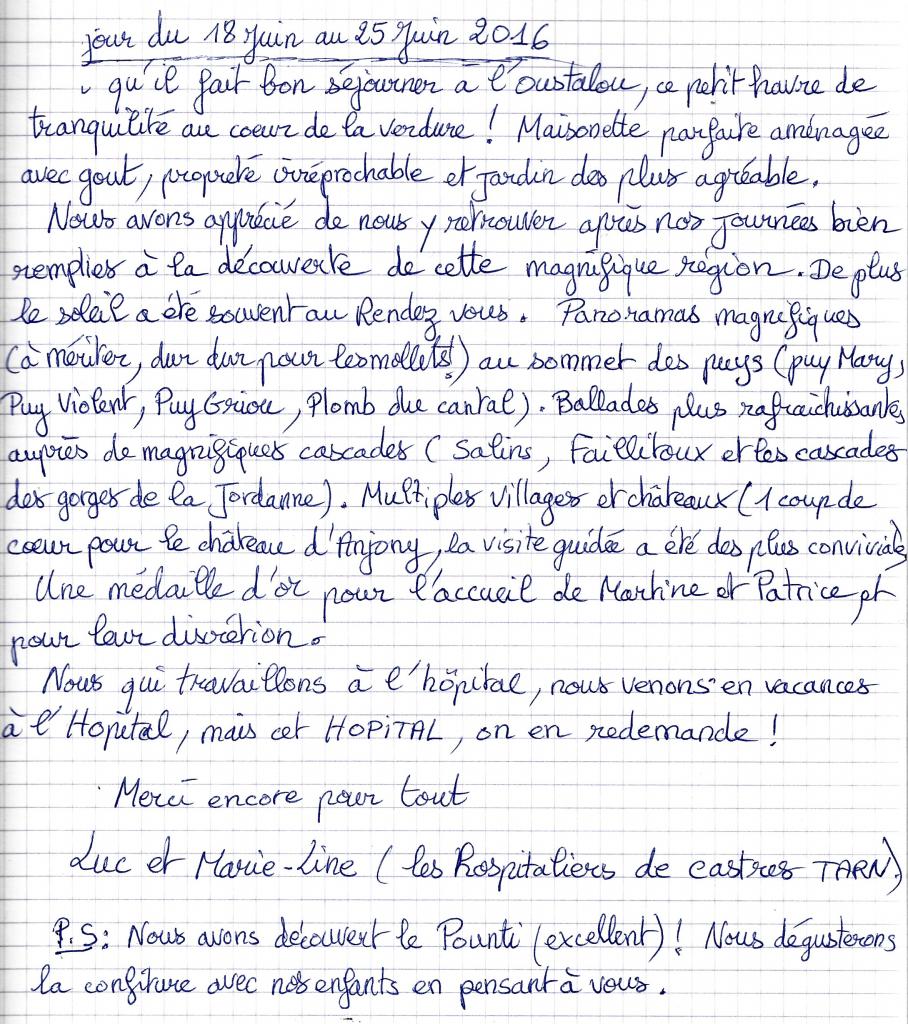 jour du 18 Juin au 25 Juin 2016
qu'il fait bon séjourner à l'Oustalou, ce petit havre de
tranquilité au coeur de la verdure ! Maisonette parfaite aménagée
avec gout, propreté irréprochable et jardin des plus agréable.
Nous avons apprécié de nous y retrouver après nos journées bien
remplies à la découverte de cette magnifique région. De plus
le soleil a été souvent au Rendez vous. Panoramas magnifiques
(à mériter, dur dur pour les mollets!) au sommet des puys (puy Mary,
Puy Violent, Puy Griou, Plomb du cantal). Ballades plus rafraichissantes
auprès de magnifiques cascades (Salins, Faillitoux et les cascades
des gorges de la Jordanne). Multiples villages et châteaux (1 coup de
coeur pour le château d'Anjony, la visite guidée a été des plus conviviale)
Une médaille d'or pour l'accueil de Martine et Patrice et
pour leur discrétion.
Nous qui travaillons à l'hôpital, nous venons en vacances
à l'Hopital, mais cet HOPITAL, on en redemande !
Merci encore pour tout
Luc et Marie-Line (les hospitaliers de castres TARN)
P.S: Nous avons découvert le Pounti (excellent)! Nous dégusterons
la confiture avec nos enfants en pensant à vous.